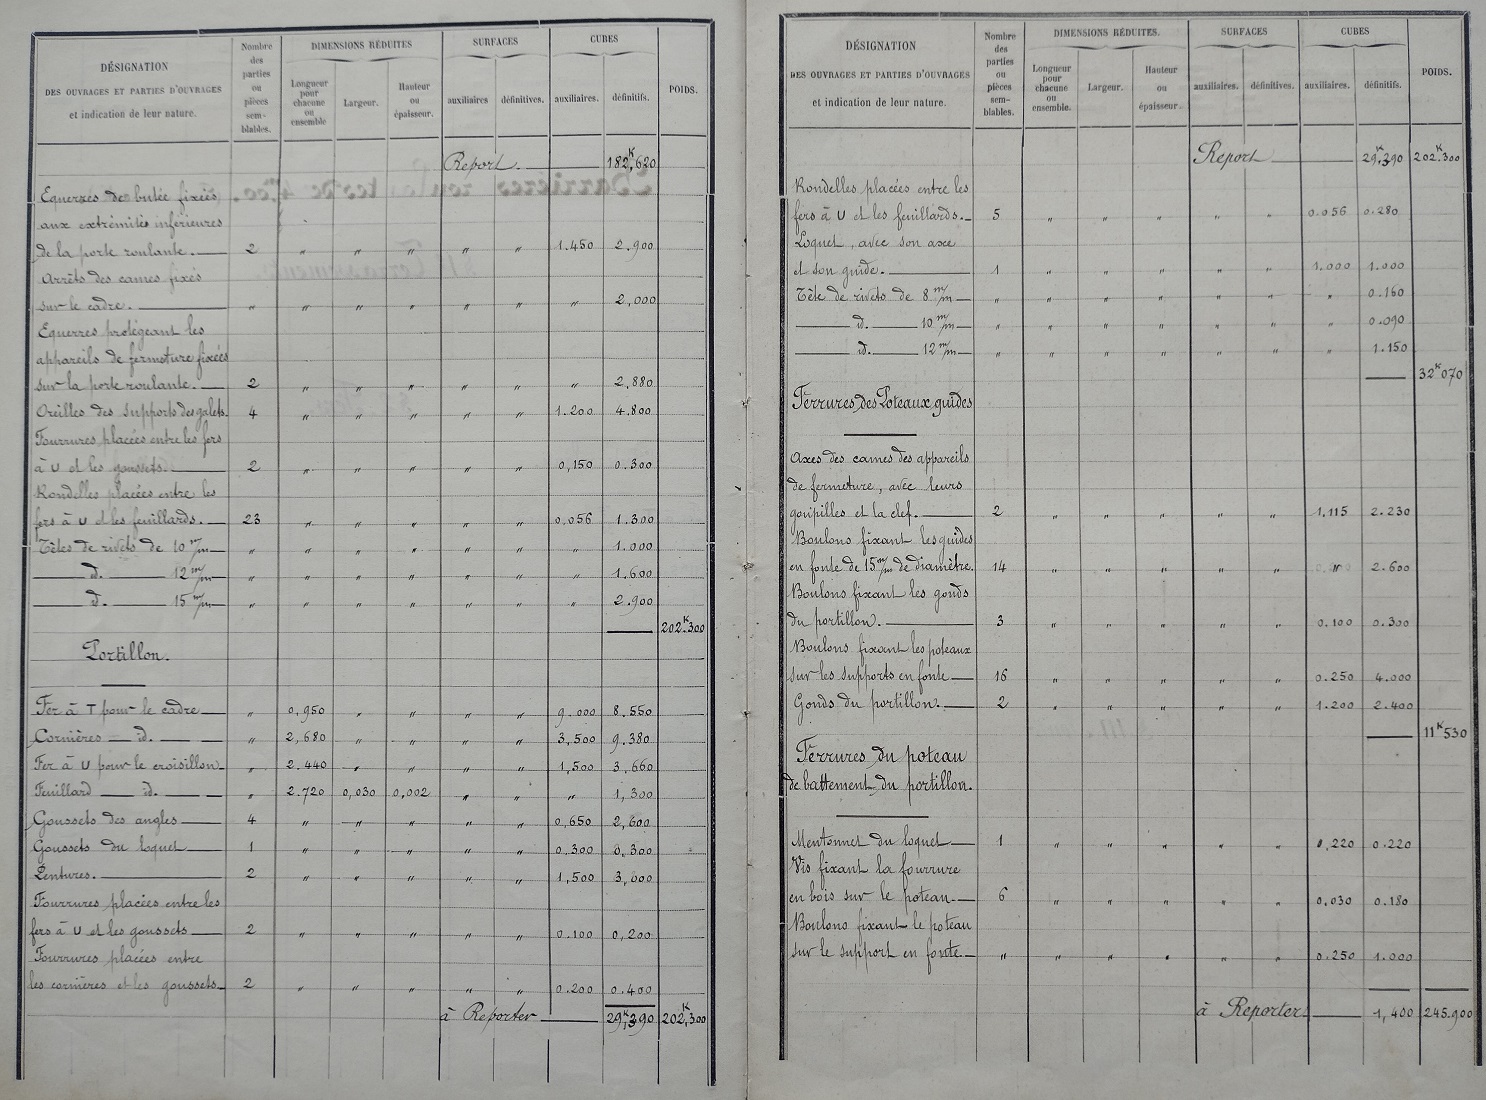 DÉSIGNATION
DES OUVRAGES ET PARTIES D'OUVRAGES
et indication de leur nature.
Nombre des parties ou pièces sem- blables.
DIMENSIONS RÉDUITES
Longueur pour chacune ou ensemble
Largeur.
Hauteur ou épaisseur.
SURFACES
auxiliaires
définitives.
CUBES
auxiliaires.
définitifs.
POIDS.
Report 182K,620
Equerres de butée fixées
aux extrémités inférieures
de la porte roulante. 2 " " " " " 1.450 2.900
Arrêts des cames fixés
sur le cadre. " " " " " " " 2,000
Equerres protégeant les
appareils de fermeture fixées
sur la porte roulante. 2 " " " " " " 2,880
Oreilles des supports des galets. 4 " " " " " 1.200 4.800
Fourrures placées entre les fers
à U et les goussets. 2 " " " " " 0,150 0.300
Rondelles placées entre les
fers à U et les feuillards. 23 " " " " " 0.056 1.300
Têtes de rivets de 10 m/m " " " " " " " 1.000
d. 12 m/m " " " " " " " 1.600
d. 15 m/m " " " " " " " 2.900
202.K300
Portillon.
Fer à T pour le cadre " 0,950 " " " " 9.000 8.550
Cornières id. " 2,680 " " " " 3,500 9.380
Fer à U pour le croisillon " 2.440 " " " " 1,500 3,660
Feuillard id. " 2.720 0,030 0,002 " " " 1,300
Goussets des angles 4 " " " " " 0,650 2,600
Goussets du loquet 1 " " " " " 0,300 0,300
Pentures. 2 " " " " " 1,500 3,000
Fourrures placées entre les
fers à U et les goussets 2 " " " " " 0.100 0,200
Fourrures placées entre
les cornières et les goussets 2 " " " " " 0.200 0.400
à Reporter 29K,390 202K,300
DÉSIGNATION
DES OUVRAGES ET PARTIES D'OUVRAGES
et indication de leur nature.
Nombre des parties ou pièces sem- blables.
DIMENSIONS RÉDUITES.
Longueur pour chacune ou ensemble.
Largeur.
Hauteur ou épaisseur.
SURFACES
auxiliaires.
définitives.
CUBES
auxiliaires.
définitifs.
POIDS.
Report 29K.390 202K.300
Rondelles placées entre les
fers à U et les feuillards. 5 " " " " " 0.056 0.280
Loquet, avec son axe
et son guide. 1 " " " " " 1.000 1.000
Tête de rivets de 8 m/m " " " " " " " 0.160
d. 10 m/m " " " " " " " 0.090
d. 12 m/m " " " " " " " 1.150
32K070
Ferrures des Poteaux guides
Axes des cames des appareils
de fermeture, avec leurs
goupilles et la clef. 2 " " " " " 1,115 2.230
Boulons fixant les guides
en fonte de 15 m/m de diamètre. 14 " " " " " " 2.600
Boulons fixant les gonds
du portillon. 3 " " " " " 0.100 0.300
Boulons fixant les poteaux
sur les supports en fonte 16 " " " " " 0.250 4.000
Gonds du portillon. 2 " " " " " 1.200 2.400
11K530
Ferrures du poteau
de battement du portillon.
Mentonnet du loquet 1 " " " " " 0,220 0.220
Vis fixant la fourrure
en bois sur le poteau. 6 " " " " " 0,030 0.180
Boulons fixant le poteau
sur le support en fonte. " " " " " " 0.250 1.000
à Reporter 1,400 245.900